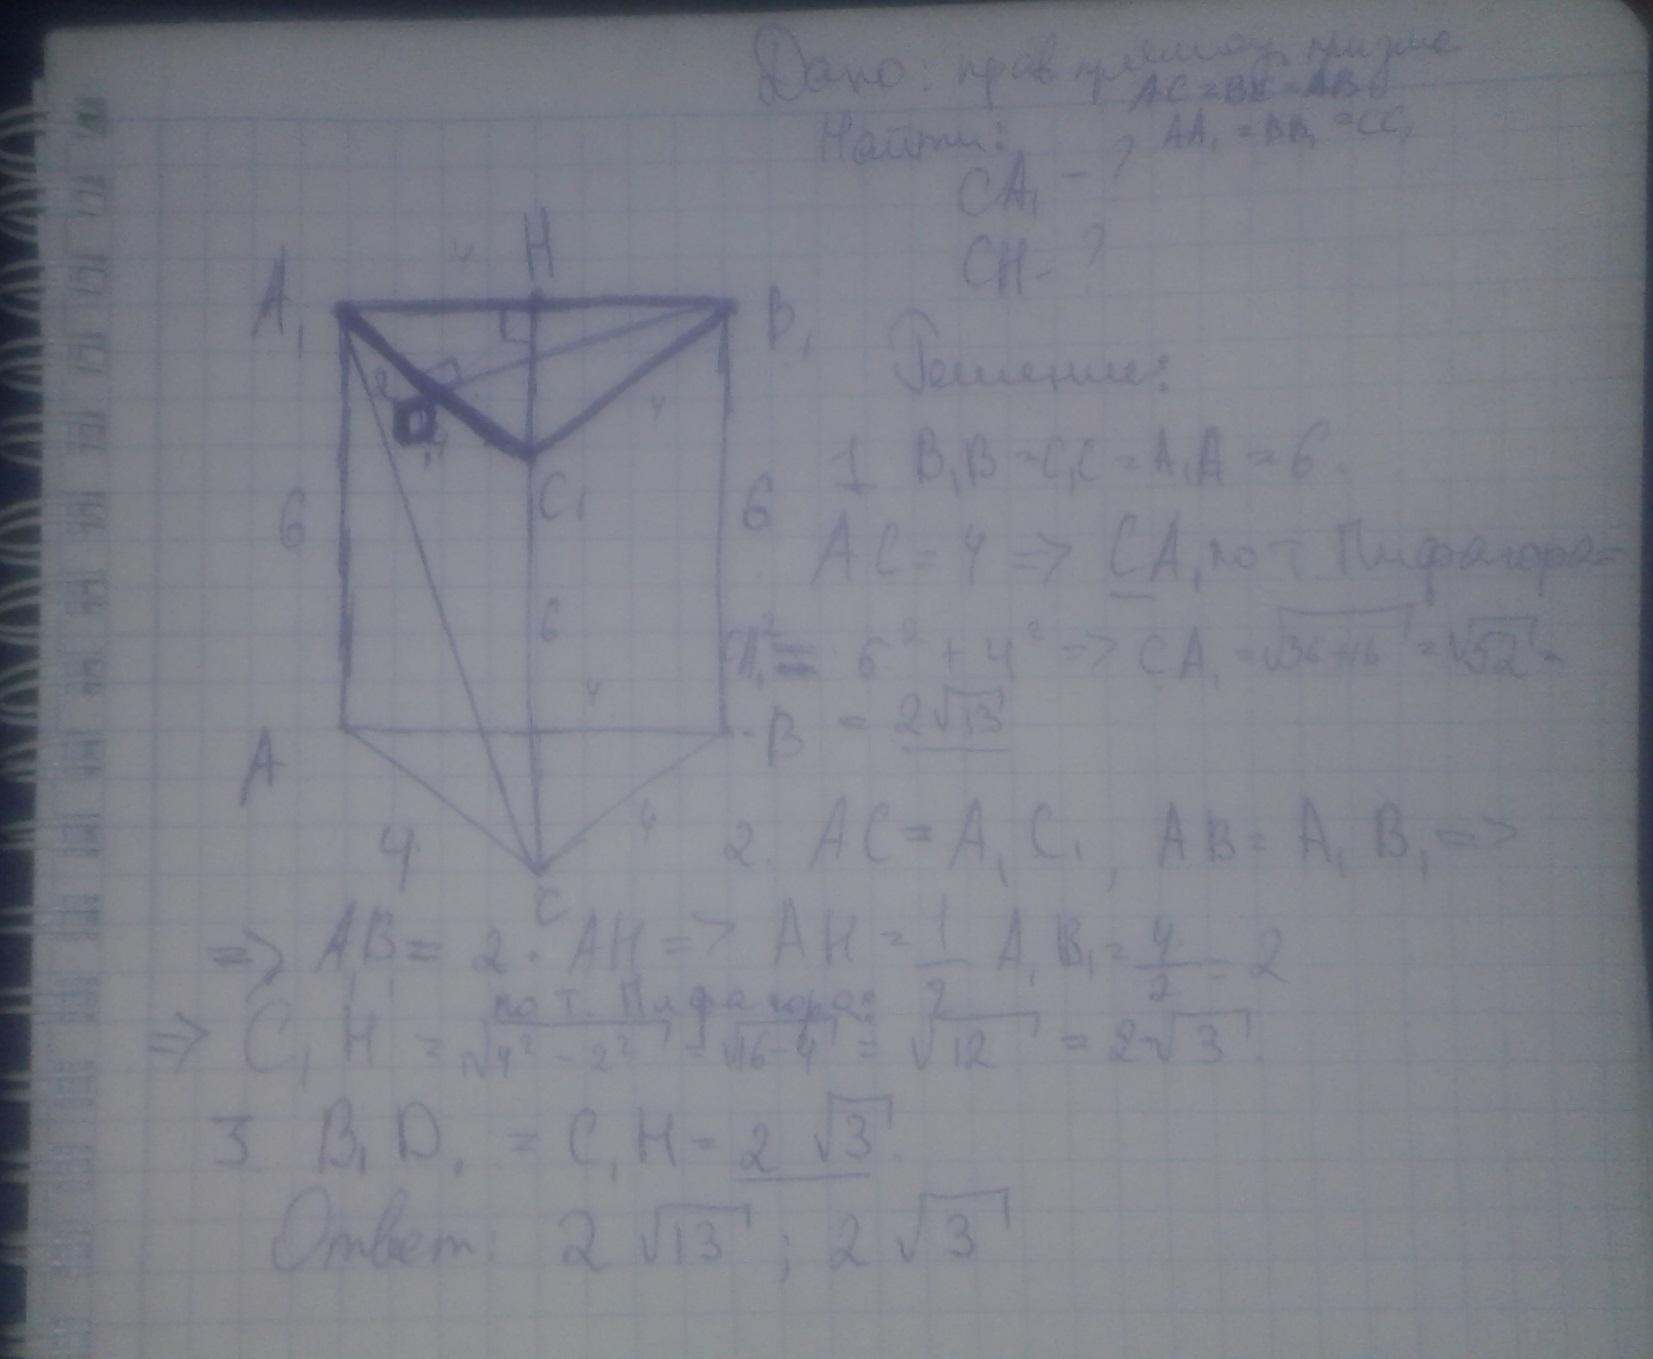 Дано: прав прямоуг. призма
AC = BC = AB
AA₁ = BB₁ = CC₁
Найти:
CA₁ - ?
CH - ?
H
4
A₁
B₁
2
4
4
C₁
6
6
6
4
A
B
4
4
C
Решение:
1 B₁B = C₁C = A₁A = 6.
AC = 4 => CA₁ по т Пифагора =
CA₁² = 6² + 4² => CA₁ = √36+16 = √52 =
= 2√13
2. AC = A₁C₁, AB = A₁B₁ =>
=> A₁B₁ = 2 · AH => AH = 1/2 A₁B₁ = 4/2 = 2
по т. Пифагора:
=> C₁H = √4² - 2² = √16-4 = √12 = 2√3.
3 B₁D₁ = C₁H = 2√3.
Ответ: 2√13; 2√3